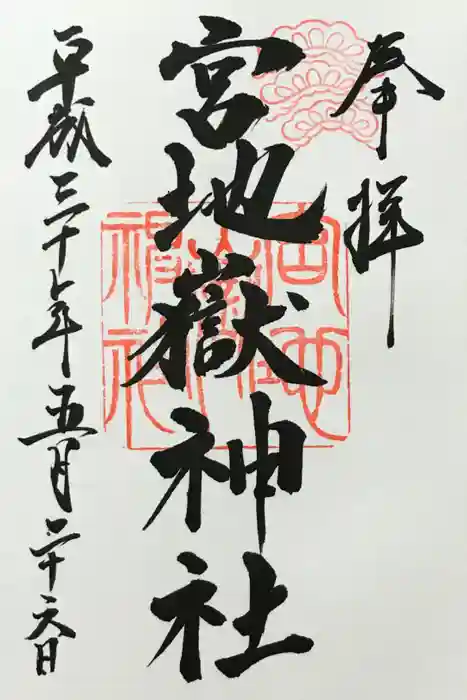 奉拝
宮地嶽神社
平成三十年五月二十六日
宮地
嶽神社